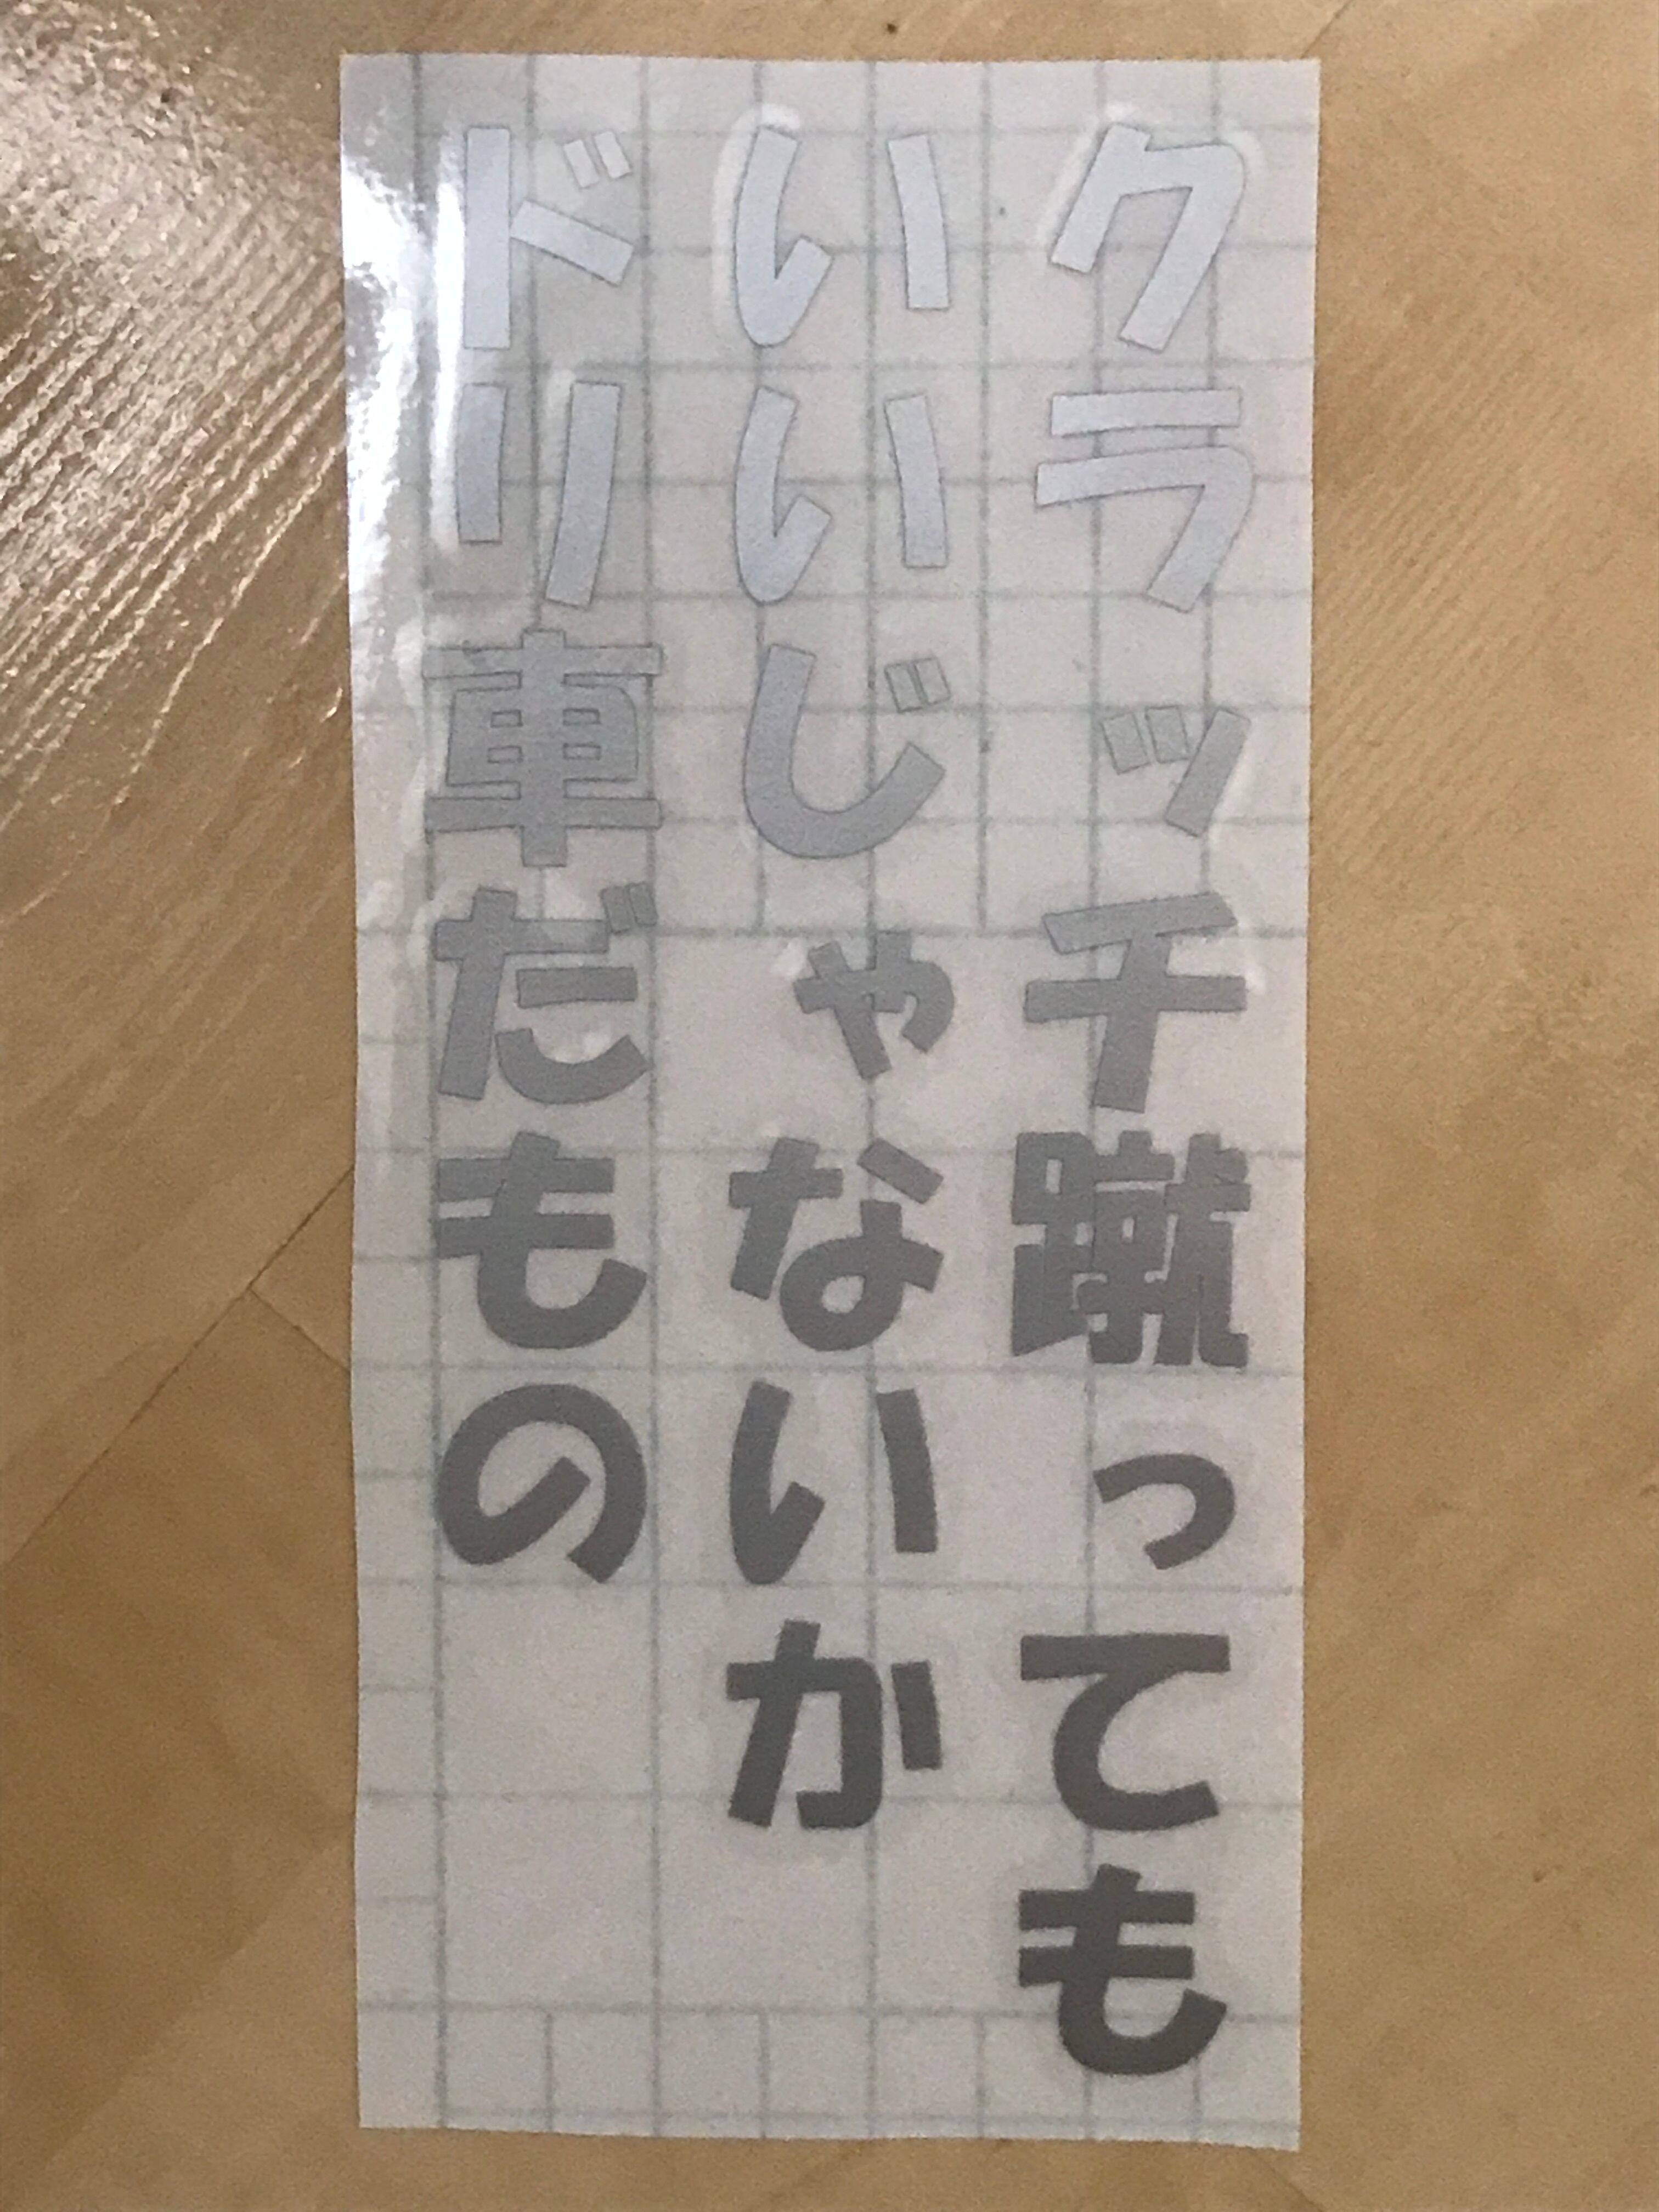 クラッチ蹴っても
いいじゃないか
ドリ車だもの